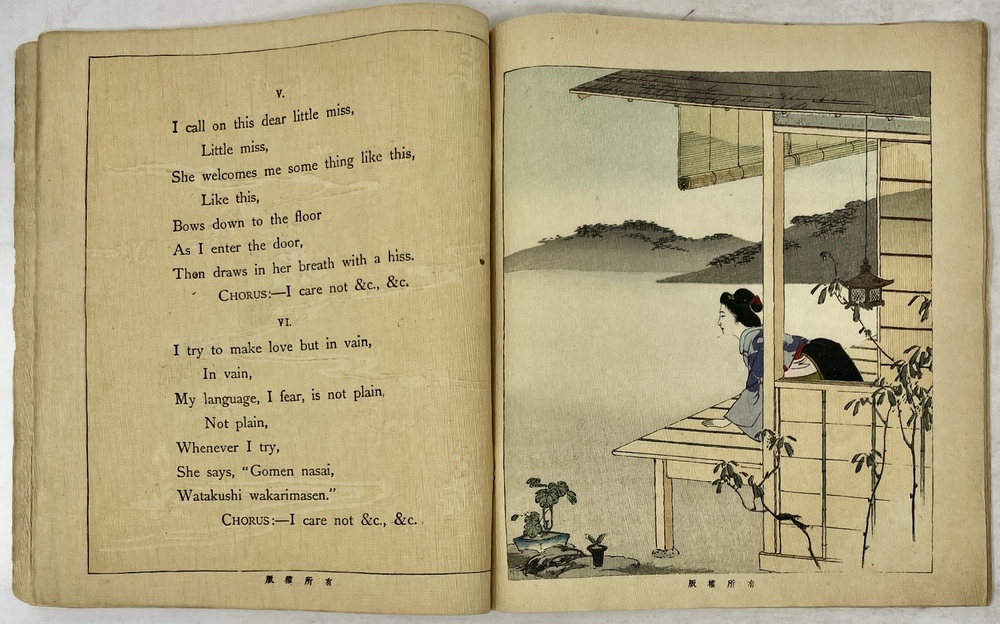 V.
I call on this dear little miss,
Little miss,
She welcomes me some thing like this,
Like this,
Bows down to the floor
As I enter the door,
Then draws in her breath with a hiss.
CHORUS:—I care not &c., &c.
VI.
I try to make love but in vain,
In vain,
My language, I fear, is not plain,
Not plain,
Whenever I try,
She says, “Gomen nasai,
Watakushi wakarimasen.”
CHORUS:—I care not &c., &c.
版權所有
版權所有